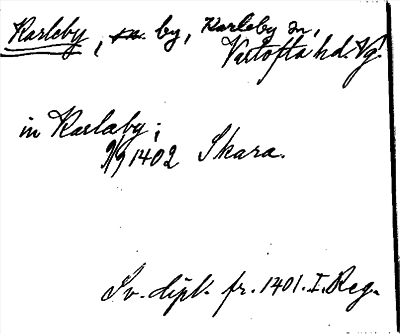 Karleby, by, Karleby sn,
Vartofta hd. Vg.
in Karlaby;
9/9 1402 Skara.
Sv. dipl. fr. 1401. I. Reg.